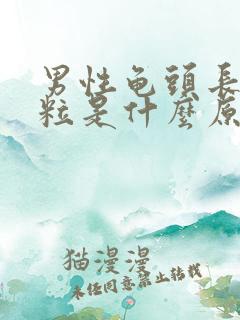 男性龟頭長
粒是什麼原
猫漫漫
未经同意禁止转载